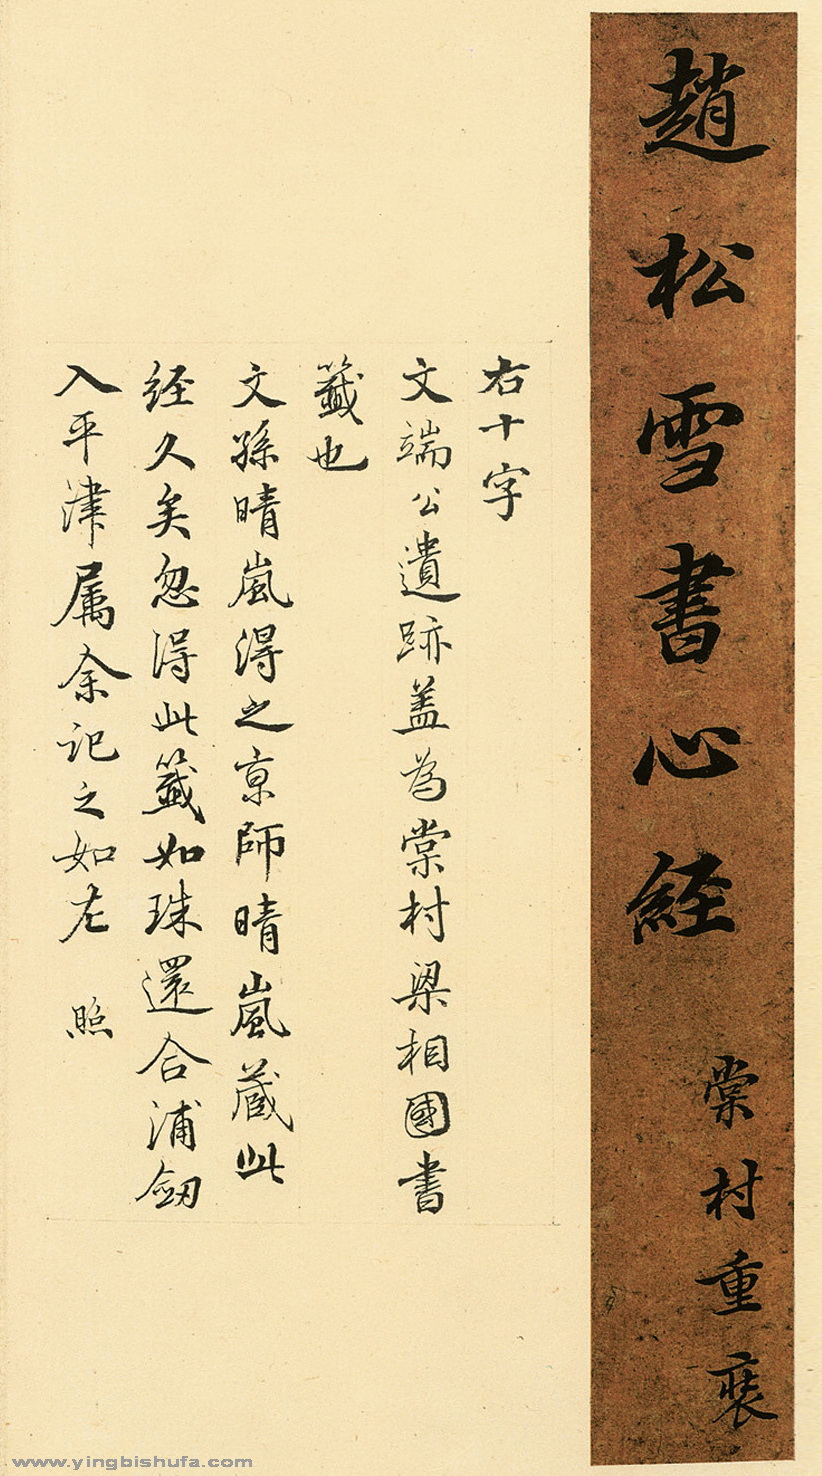 趙松雪書心經
棠村重裝
右十字
文端公遺跡蓋為棠村梁相國書
籤也
文孫晴嵐得之京師晴嵐藏此
経久矣忽得此籤如珠還合浦劔
入平津属余記之如左 照
www.yingbishufa.com